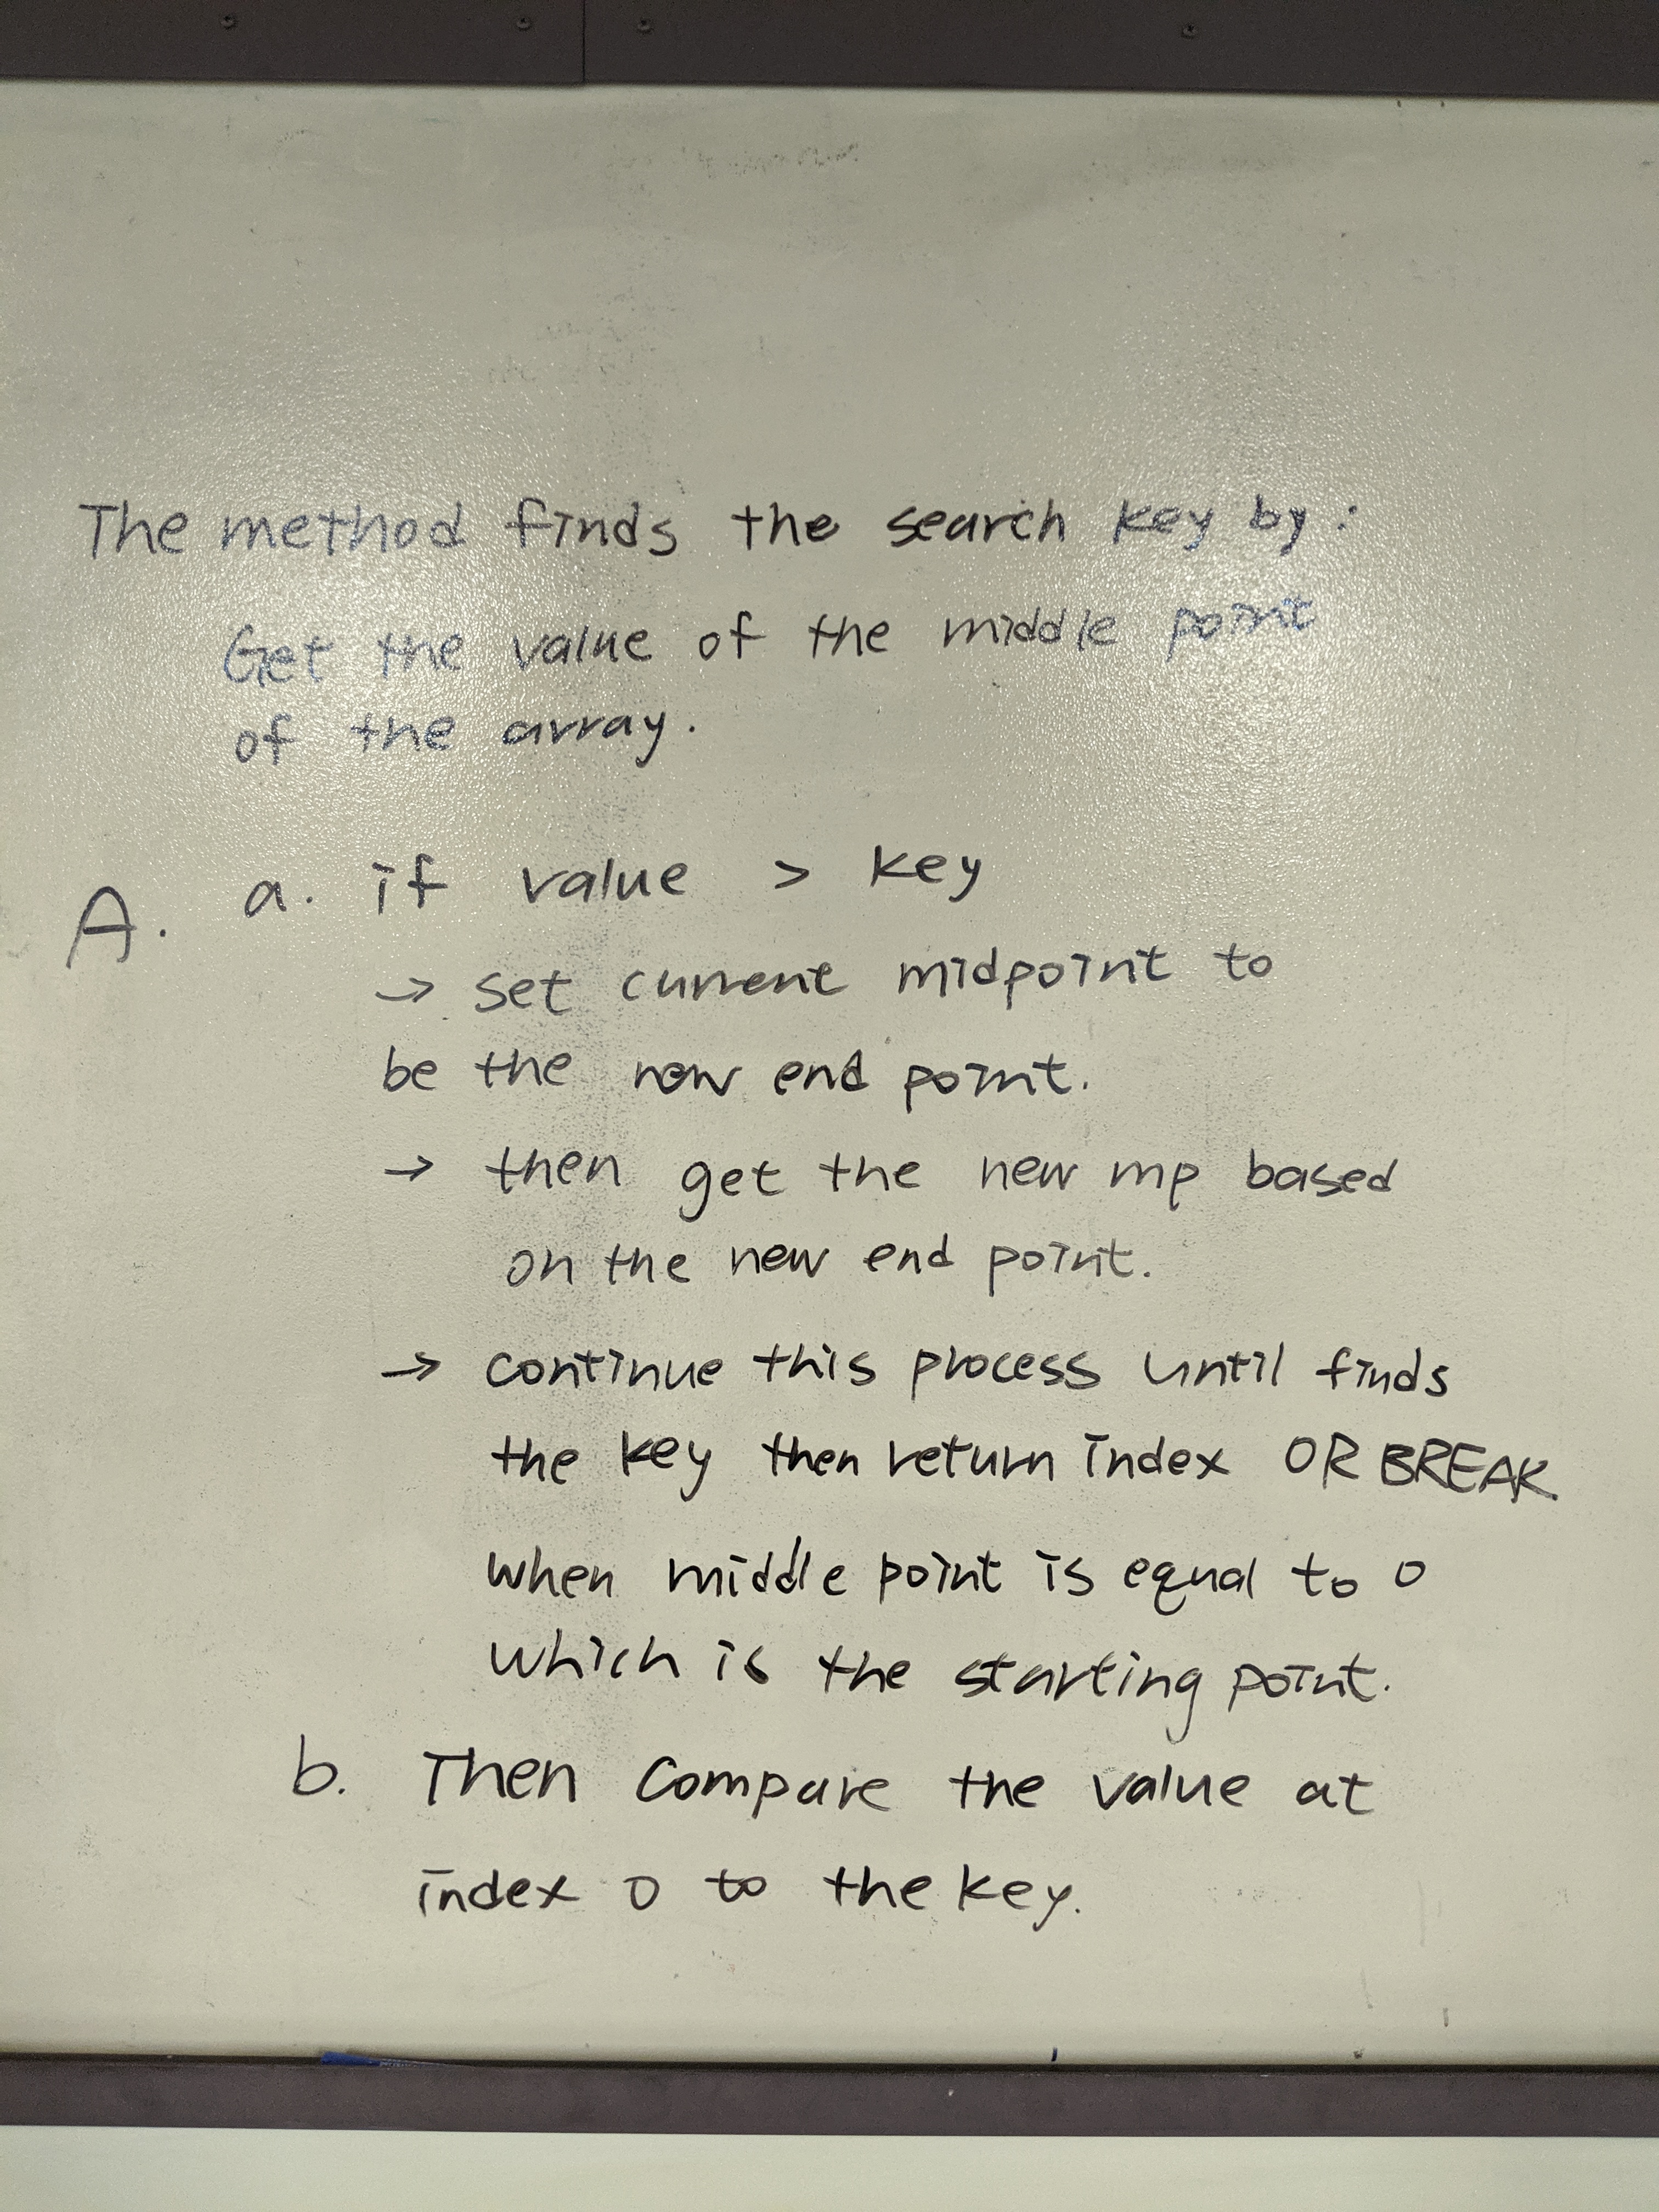 The method finds the search key by:
Get the value of the middle point
of the array.
A. a. if value > key
→ set current midpoint to
be the now end point.
→ then get the new mp based
on the new end point.
→ continue this process until finds
the key then return index OR BREAK
when middle point is equal to 0
which is the starting point.
b. Then compare the value at
index 0 to the key.